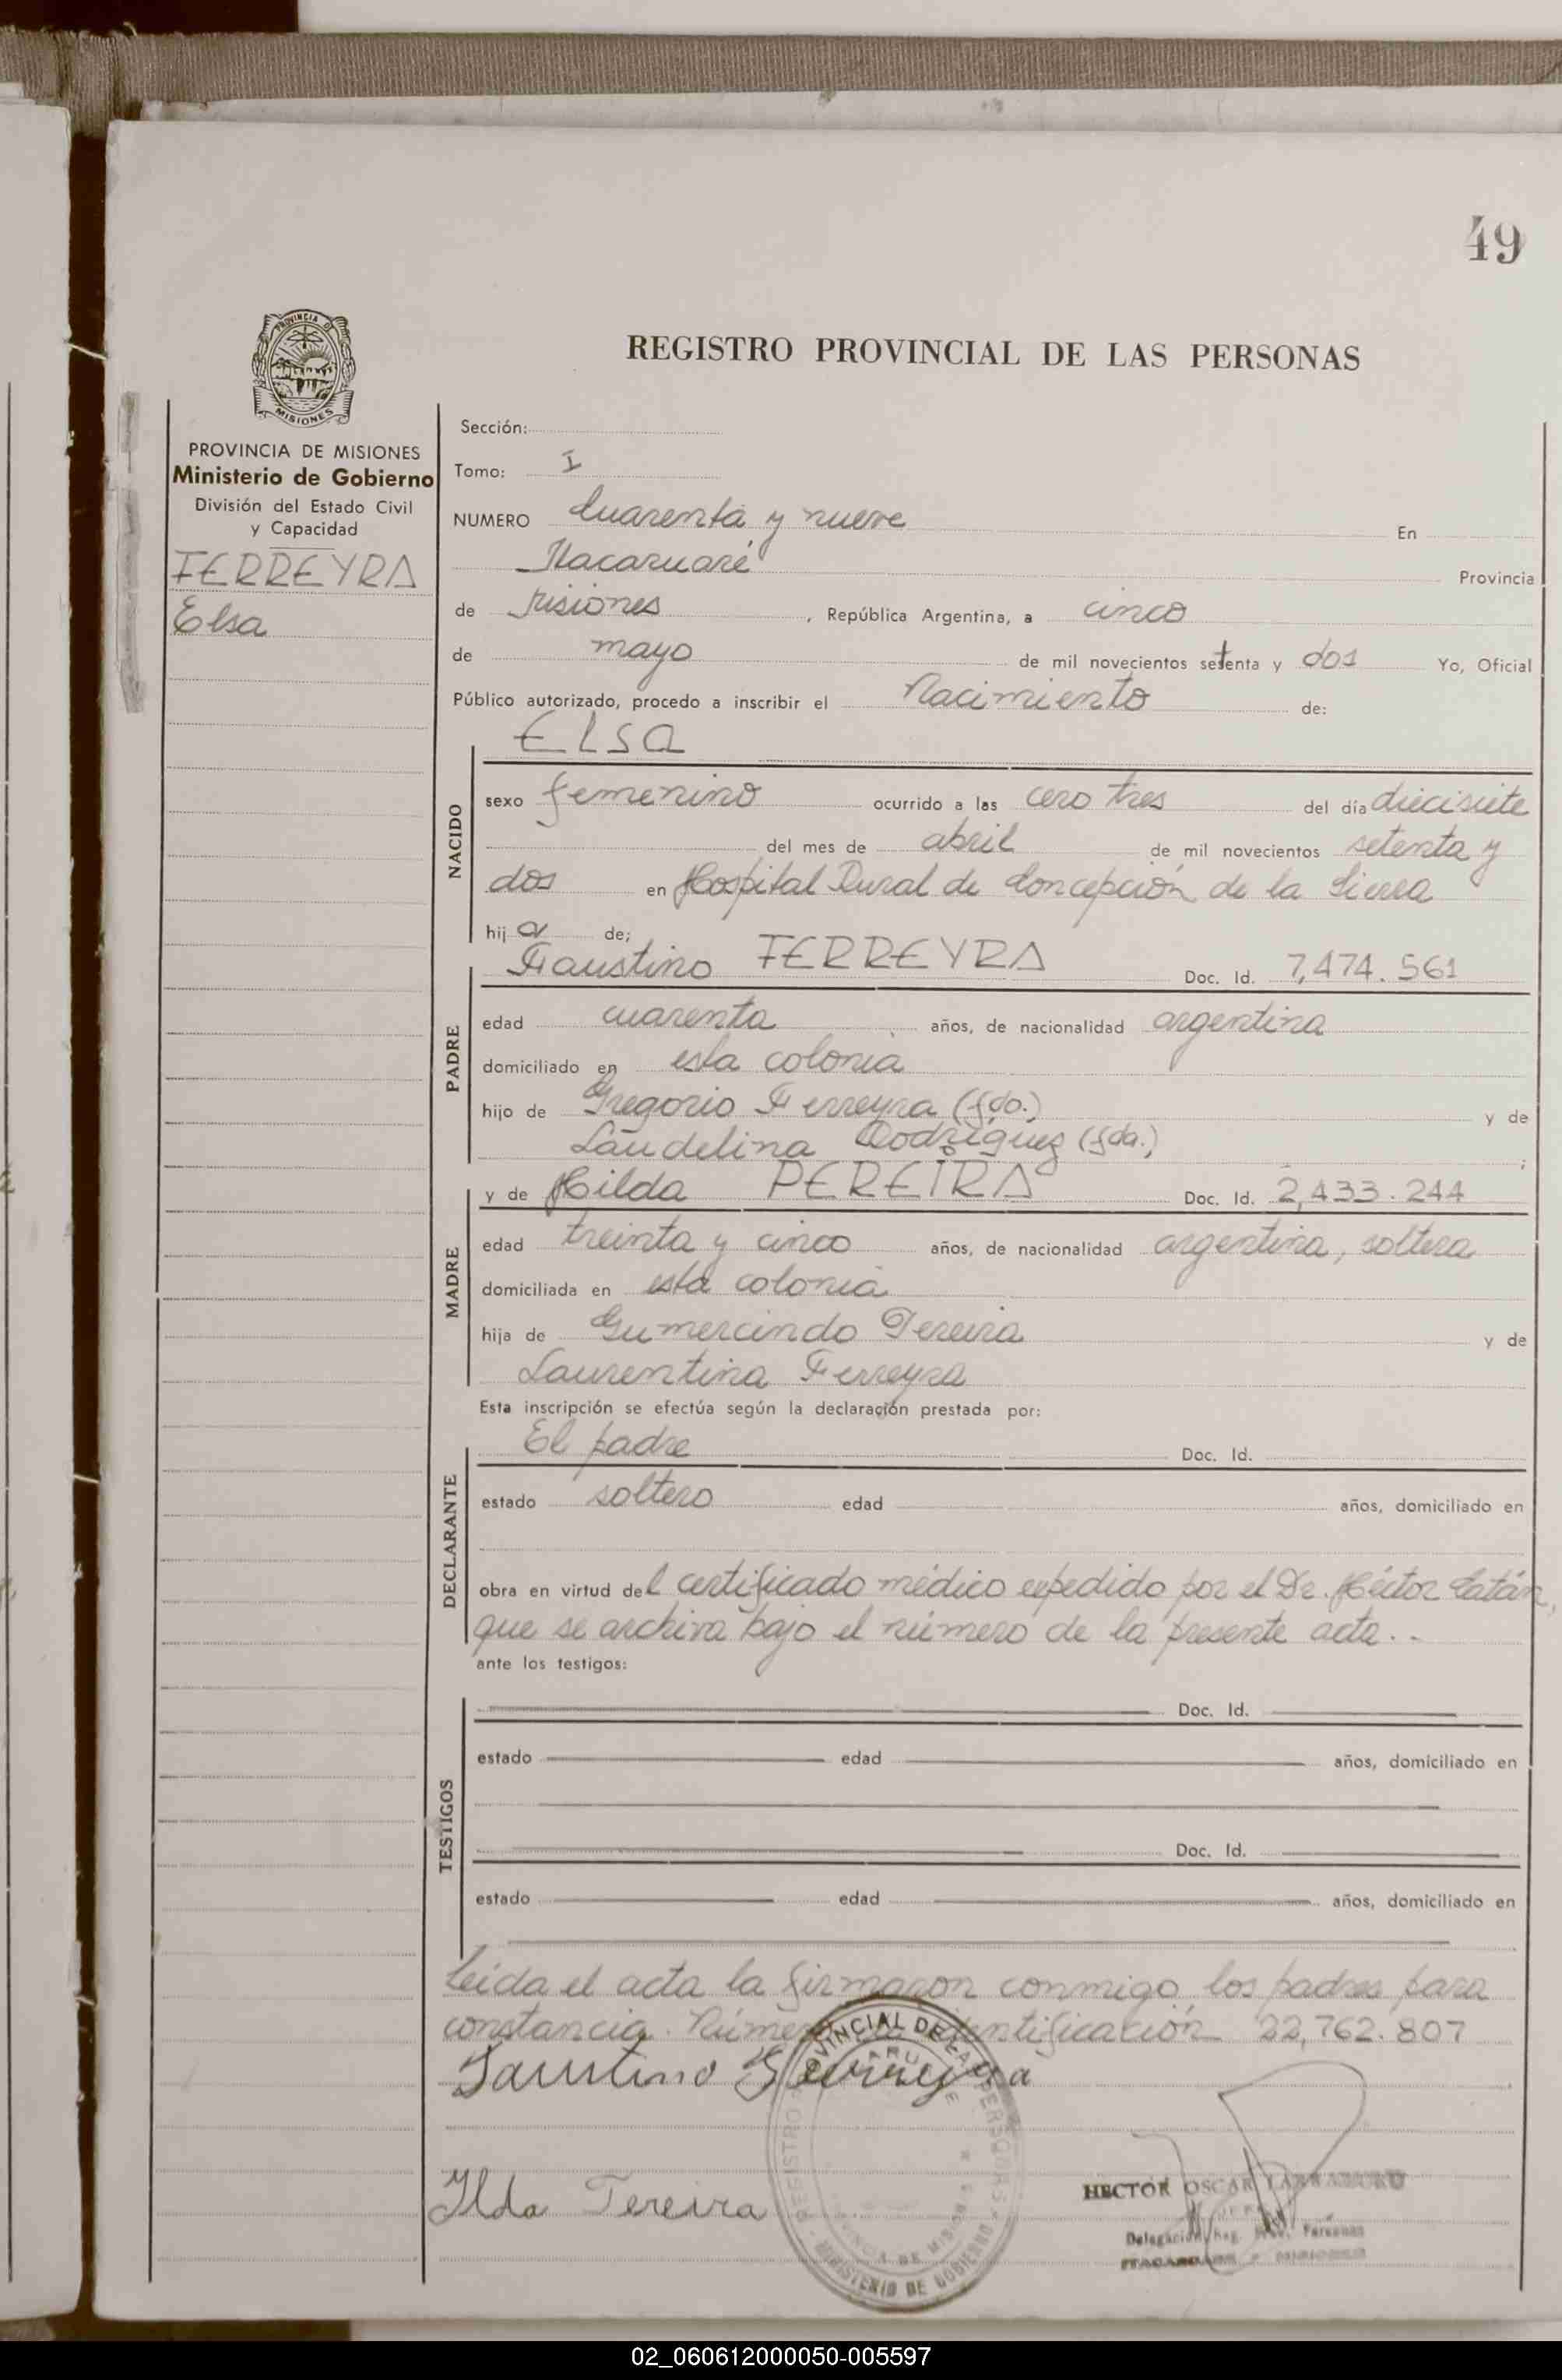 49
PROVINCIA DE
MISIONES
PROVINCIA DE MISIONES
Ministerio de Gobierno
División del Estado Civil
y Capacidad
FERREYRA
Elsa
REGISTRO PROVINCIAL DE LAS PERSONAS
Sección:
Tomo: I
NUMERO Cuarenta y nueve En
Itacaruaré Provincia
de Misiones, República Argentina, a cinco
de mayo de mil novecientos setenta y dos Yo, Oficial
Público autorizado, procedo a inscribir el Nacimiento de:
ELSA
NACIDO
sexo femenino ocurrido a las cero tres del día diecisiete
del mes de abril de mil novecientos setenta y
dos en Hospital Rural de Concepción de la Sierra
hija de;
PADRE
Faustino FERREYRA Doc. Id. 7,474.561
edad cuarenta años, de nacionalidad argentina
domiciliado en esta colonia
hijo de Gregorio Ferreyra (fdo.) y de
Laudelina Rodríguez (fda.) ;
MADRE
y de Hilda PEREIRA Doc. Id. 2,433.244
edad treinta y cinco años, de nacionalidad argentina, soltera
domiciliada en esta colonia
hija de Gumercindo Pereira y de
Laurentina Ferreyra
Esta inscripción se efectúa según la declaración prestada por:
DECLARANTE
El padre Doc. Id.
estado soltero edad años, domiciliado en
obra en virtud del certificado médico expedido por el Dr. Héctor Catán,
que se archiva bajo el número de la presente acta.-
ante los testigos:
TESTIGOS
Doc. Id.
estado edad años, domiciliado en
Doc. Id.
estado edad años, domiciliado en
Leida el acta la firmaron conmigo, los padres para
constancia. Número de identificación 22,762.807
Faustino Ferreyra
REGISTRO PROVINCIAL DE LAS PERSONAS
MINISTERIO DE GOBIERNO
PROVINCIA DE MISIONES
Ilda Pereira
HECTOR OSCAR
Delegación Reg. Prov. Personas
ITACARUARE - MISIONES
02_060612000050-005597